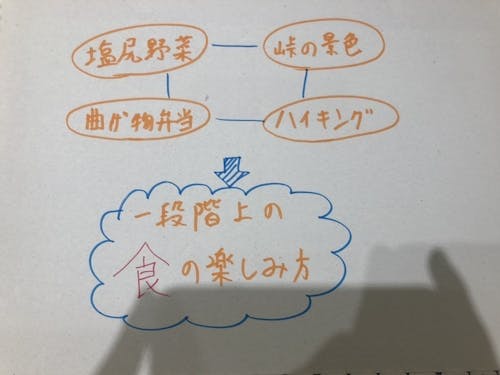 塩尻野菜
峠の景色
曲げ物弁当
ハイキング
一段階上の
食の楽しみ方